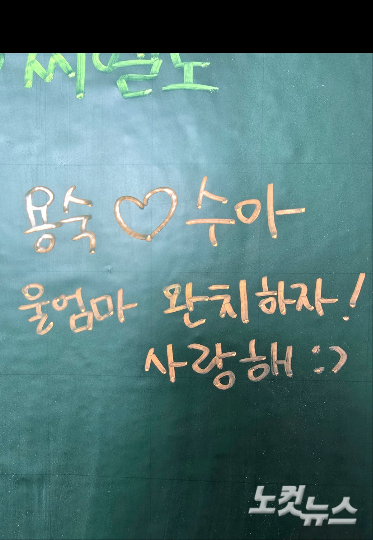 용숙 ♡ 수아
울엄마 완치하자!
사랑해 :>
노컷뉴스